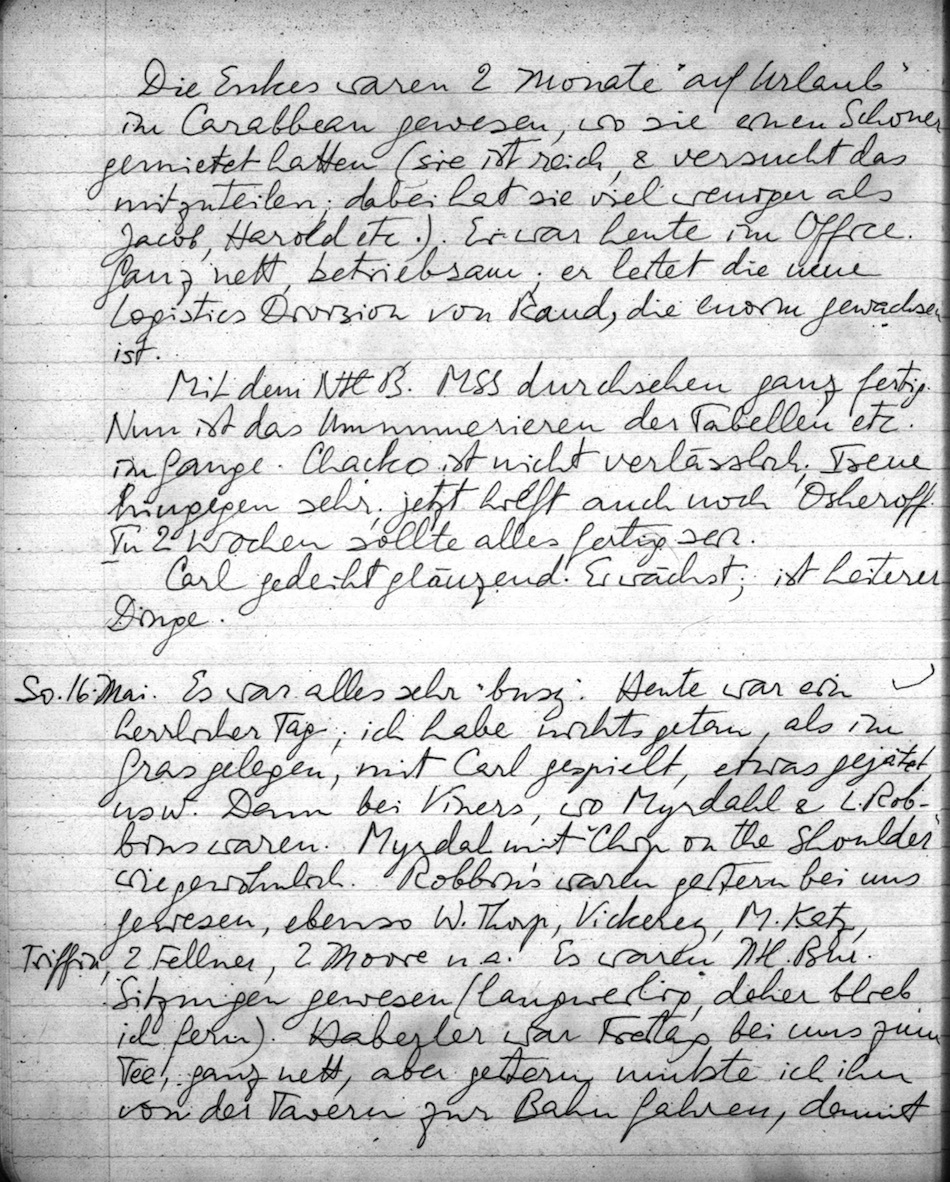 Die Enkes waren 2 Monate "auf Urlaub"
im Carabbean gewesen, wo sie einen Schoner
gemietet hatten (sie ist reich, & versucht das
mitzuteilen; dabei hat sie viel weniger als
Jacob, Harold etc.). Er war heute im Office.
Ganz nett, betriebsam; er leitet die neue
Logistics Division von Rand, die enorm gewachsen
ist.
Mit dem NH B. MSS durchsehen ganz fertig.
Nun ist das Ummumerieren der Tabellen etc.
im Gange. Chacko ist nicht verlässlich,
hingegen sehr; jetzt hilft auch noch Osheroff.
In 2 Wochen sollte alles fertig sein.
Carl gedeiht glänzend. Er wächst; ist heiterer
Dinge.
So. 16. Mai. Es war alles sehr "busy". Heute war ein
herrlicher Tag; ich habe nichts getan, als im
Gras gelegen, mit Carl gespielt, etwas gejätet,
usw. Dann bei Viners, wo Myrdahl & L. Rob-
bins waren. Myrdal mit "Chip on the Shoulder"
wie gewöhnlich. Robbins waren gestern bei uns
gewesen, ebenso W. Thorp, Vickerey, M. Katz,
Triffin, 2 Fellner, 2 Moore u. a. Es waren NH. Bur.
Sitzungen gewesen (langweilig, daher blieb
ich fern). Haberler war Freitag bei uns zum
Tee, ganz nett, aber gestern mußte ich ihn
von der Tavern zur Bahn fahren, damit